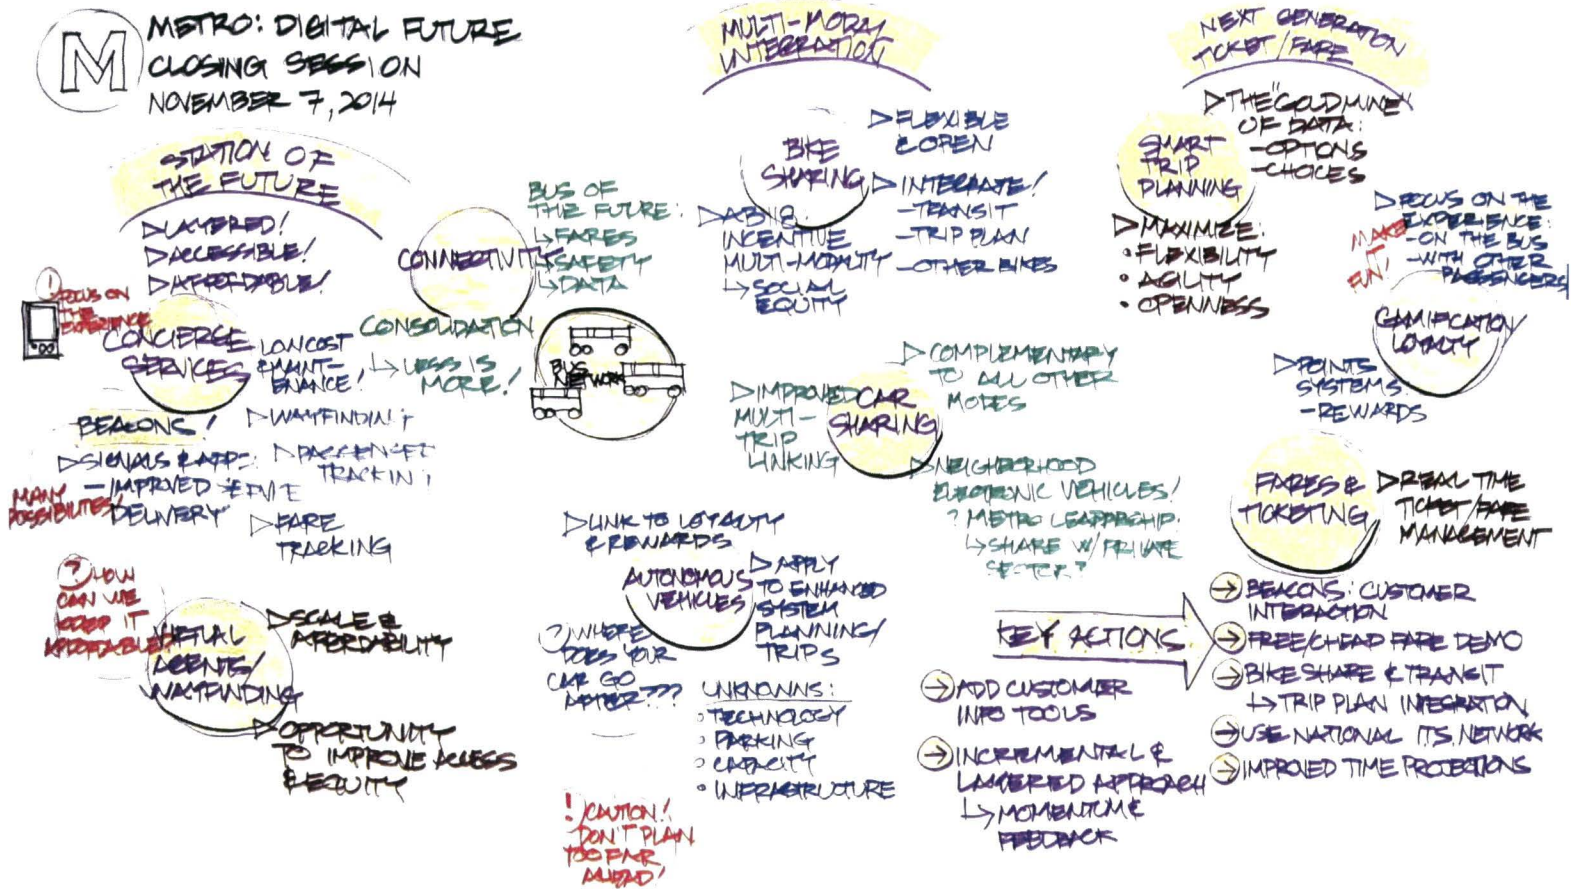 M
METRO: DIGITAL FUTURE
CLOSING SESSION
NOVEMBER 7, 2014
STATION OF
THE FUTURE
▷LAYERED!
▷ACCESSIBLE!
▷AFFORDABLE!
! FOCUS ON
THE
EXPERIENCE
CONCIERGE
SERVICES
LOW COST
& MAINT-
ENANCE!
BEACONS!
▷SIGNALS & APPS:
-IMPROVED SERVICE
DELIVERY
MANY
POSSIBILITES!
▷WAYFINDING
▷PASSENGER
TRACKING
▷FARE
TRACKING
? HOW
CAN WE
KEEP IT
AFFORDABLE?
VIRTUAL
AGENTS/
WAYFINDING
▷SCALE &
AFFORDABILITY
▷OPPORTUNITY
TO IMPROVE ACCESS
& EQUITY
CONNECTIVITY
BUS OF
THE FUTURE:
↳FARES
↳SAFETY
↳DATA
CONSOLIDATION
↳LESS IS
MORE!
BUS
NETWORK
MULTI-MODAL
INTEGRATION
BIKE
SHARING
▷FLEXIBLE
& OPEN
▷INTEGRATE!
-TRANSIT
-TRIP PLAN
-OTHER BIKES
INCENTIVE
MULTI-MODALITY
↳SOCIAL
EQUITY
CAR
SHARING
▷COMPLEMENTARY
TO ALL OTHER
MODES
▷IMPROVED
MULTI-
TRIP
LINKING
▷NEIGHBORHOOD
ELECTRONIC VEHICLES!
? METRO LEADERSHIP.
↳SHARE W/ PRIVATE
SECTOR?
▷LINK TO LOYALTY
& REWARDS
AUTONOMOUS
VEHICLES
▷APPLY
TO ENHANCED
SYSTEM
PLANNING/
TRIPS
? WHERE
DOES YOUR
CAR GO
AFTER???
UNKNOWNS:
• TECHNOLOGY
• PARKING
• CAPACITY
• INFRASTRUCTURE
! CAUTION!
DON'T PLAN
TOO FAR
AHEAD!
NEXT GENERATION
TICKET/FARE
SMART
TRIP
PLANNING
▷THE "GOLDMINE"
OF DATA:
-OPTIONS
-CHOICES
▷MAXIMIZE:
• FLEXIBILITY
• AGILITY
• OPENNESS
▷FOCUS ON THE
EXPERIENCE:
-ON THE BUS
-WITH OTHER
PASSENGERS
MAKE
IT
FUN!
GAMIFICATION/
LOYALTY
▷POINTS
SYSTEMS
-REWARDS
FARES &
TICKETING
▷REAL TIME
TICKET/FARE
MANAGEMENT
KEY ACTIONS
→ ADD CUSTOMER
INFO TOOLS
→ INCREMENTAL &
LAYERED APPROACH
↳MOMENTUM &
FEEDBACK
→ BEACONS: CUSTOMER
INTERACTION
→ FREE/CHEAP FARE DEMO
→ BIKE SHARE & TRANSIT
↳TRIP PLAN INTEGRATION
→ USE NATIONAL ITS NETWORK
→ IMPROVED TIME PROJECTIONS